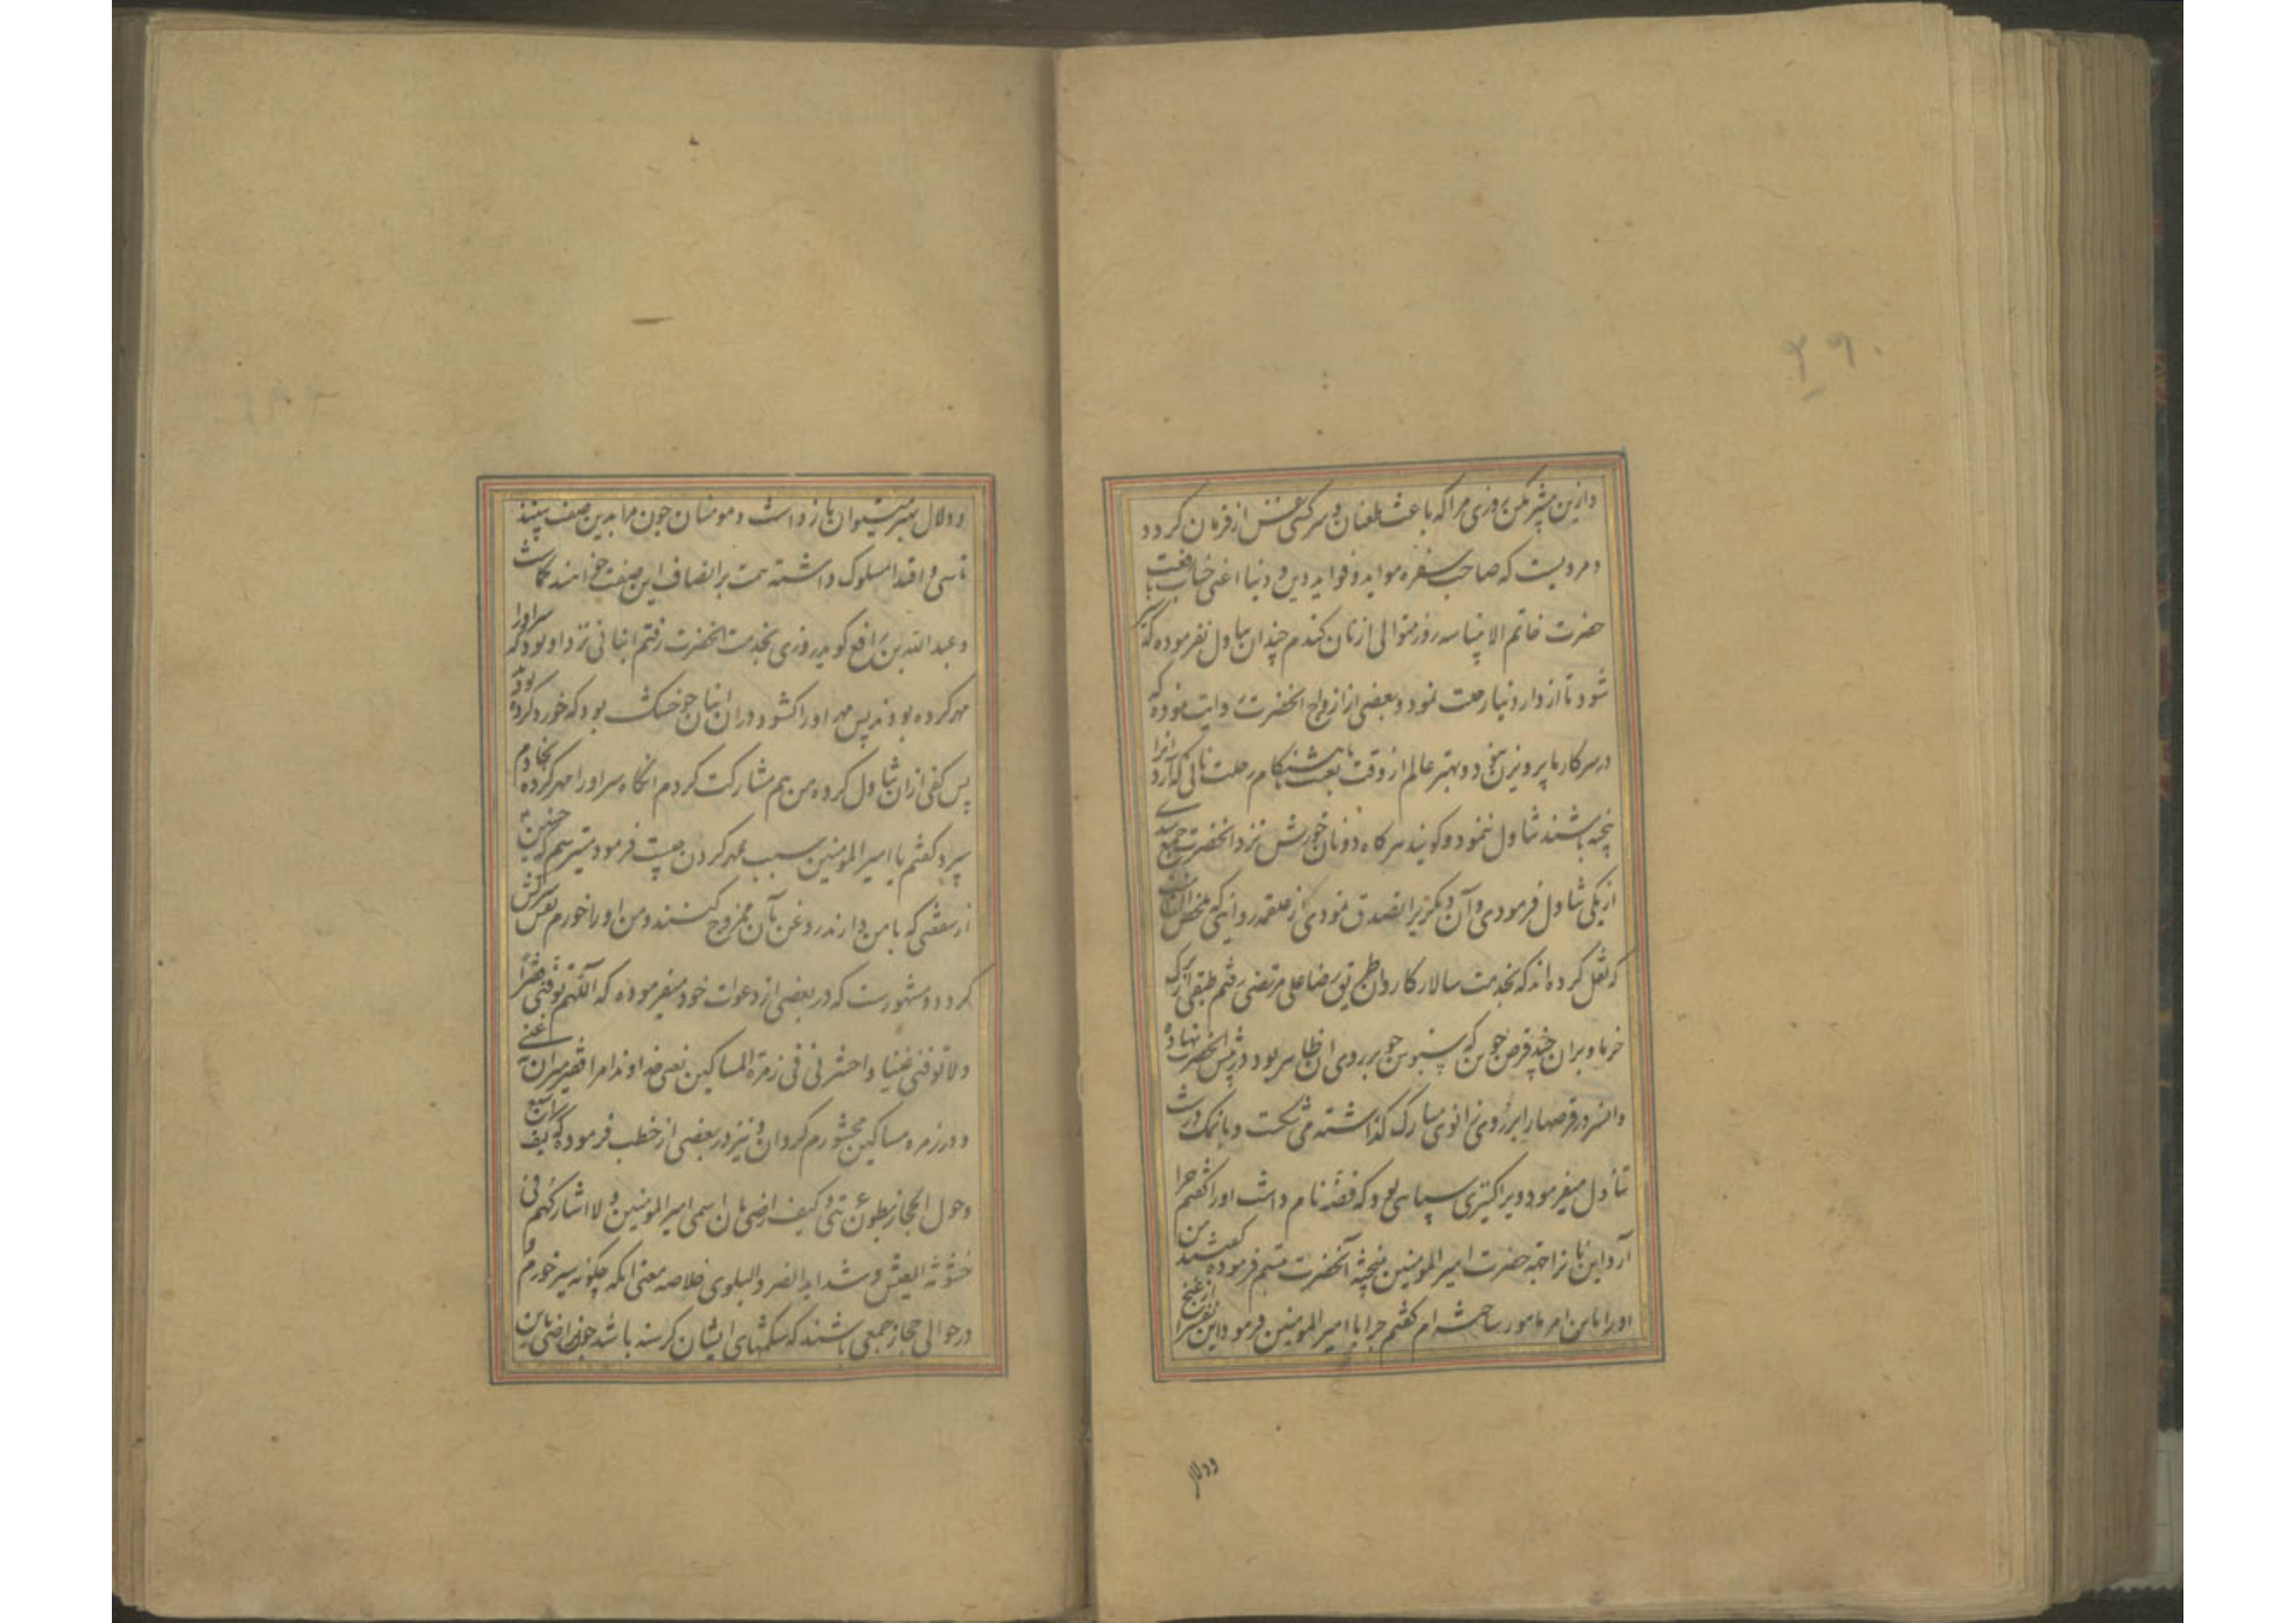 ۲۹۰
وازین بیشتر مکن روزی مرا که باعث طغیان و سرکشی نفس از فرمان کردد
و مرویست که صاحب سفره موایده و فواید دین و دنیا اعنی جناب
حضرت خاتم الانبیا سه روز متوالی از نان کندم چندان تناول نفرموده که سیر
شود تا از دار دنیا رحلت نمود و بعضی از ازواج انحضرت روایت نموده که
در سرکار ما پرویزن نبود و مهتر عالم از وقت بعثت تا هنکام رحلت نانی که آرد انرا
پخته باشند تناول ننمود و کویند هر کاه دو نان خورش نزد انحضرت جمع شدی
از یکی تناول فرمودی و آن دیکر را تصدق نمودی از علقمه روایتی
که نقل کرده اند که بخدمت سالار کاروان طریق رضا علی مرتضی رفتم طبقی از برک
خرما و بران چند قرص جوین که سبوس جو بر روی ان ظاهر بود در پیش انحضرت نهاده
وانسرور قرصها را بر روی زانوی مبارک کذاشته می شکست و با نمک درشت
تناول میفرمود و ویرا کنیزی سیاهی بود که فضه نام داشت او را کفتم چرا
آرد این نان را جهة حضرت امیر المومنین نپخته آنحضرت تبسم فرموده کفتند من
او را باین امر مامور ساخته ام کفتم چرا یا امیر المومنین فرمود این نفس را
وولال
وولال بهتر میتوان باز داشت و مومنان جون مرا بدین صفت بینند
تاسی و اقتدا مسلوک داشته همت بر اتصاف این صفت خواهند کماشت
و عبد الله بن رافع کوید روزی بخدمت انحضرت رفتم انبانی نزد او بود که سر اورا
مهر کرده بودند پس مهر اورا کشود و دران انبان جو خشک بود که خورد کرده بود
پس کفی از ان تناول کرده من هم مشارکت کردم انکاه سر اورا مهر کرده بخادم
سپرد کفتم یا امیر المومنین سبب مهر کردن چیست فرمود میترسم که حسنین
از شفقتی که با من دارند روغن بآن ممزوج کنند و من او را خورم نفس سرکش
کردد و مشهورست که در بعضی از دعوات خود میفرموده که اللهم توفنی فقیرا
ولا توفنی غنیا واحشرنی فی زمرة المساکین یعنی خداوندا مرا فقیر میران نه غنی
و در زمره مساکین محشورم کردان و نیز در بعضی از خطب فرموده که کیف اشبع
وحول الحجاز بطون غرثی کیف ارضی بان اسمی امیر المومنین ولا اشارکهم فی
خشونة العیش و شداید الضر والبلوی خلاصه معنی انکه چکونه سیر خورم و
در حوالی حجاز جمعی باشند که شکمهای ایشان کرسنه باشد چون راضی باین